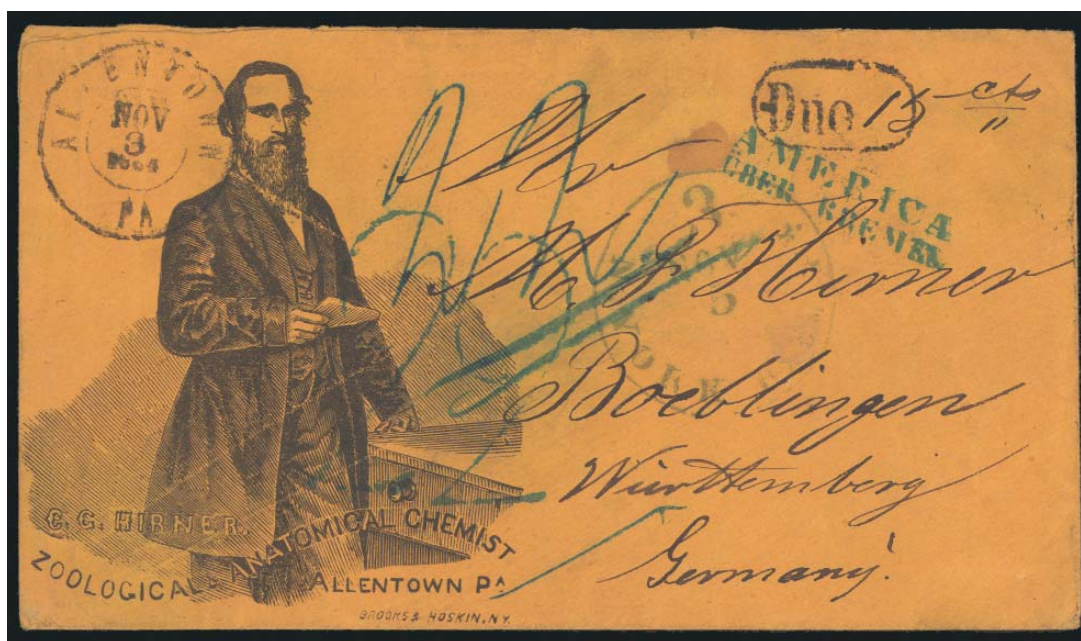 ALLENTOWN
NOV
3
1864
PA
Due 15 cts
AMERICA
ÜBER BREMEN
3
Mr
Hirner
Boeblingen
Württemberg
Germany.
C. G. HIRNER.
ZOOLOGICAL & ANATOMICAL CHEMIST
ALLENTOWN PA
BROOKS & HOSKIN, N.Y.